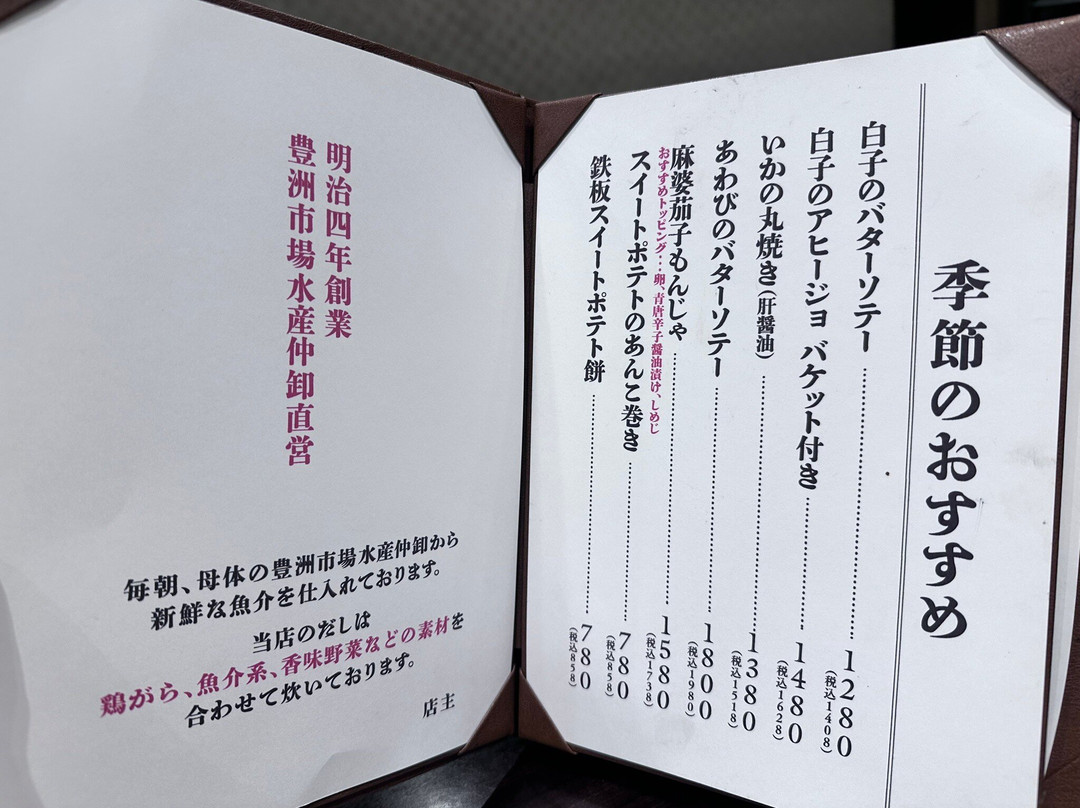 季節のおすすめ
白子のバターソテー 1280
(税込1408)
白子のアヒージョ バケット付き 1480
(税込1628)
いかの丸焼き(肝醤油) 1380
(税込1518)
あわびのバターソテー 1800
(税込1980)
麻婆茄子もんじゃ 1580
(税込1738)
おすすめトッピング…卵、青唐辛子醤油漬け、しめじ
スイートポテトのあんこ巻き 780
(税込858)
鉄板スイートポテト餅 780
(税込858)
明治四年創業
豊洲市場水産仲卸直営
毎朝、母体の豊洲市場水産仲卸から
新鮮な魚介を仕入れております。
当店のだしは
鶏がら、魚介系、香味野菜などの素材を
合わせて炊いております。
店主